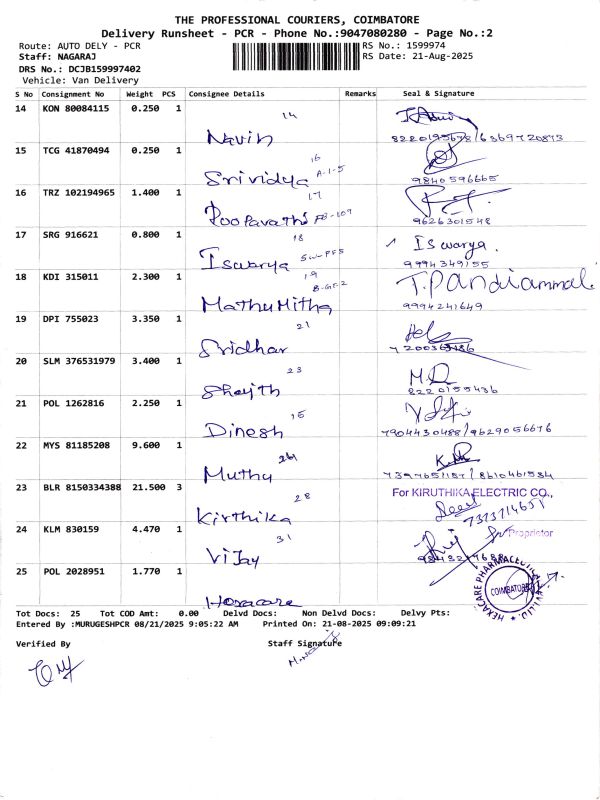 THE PROFESSIONAL COURIERS, COIMBATORE
Delivery Runsheet - PCR - Phone No.:9047080280 - Page No.:2
Route: AUTO DELY - PCR RS No.: 1599974
Staff: NAGARAJ RS Date: 21-Aug-2025
DRS No.: DCJB159997402
Vehicle: Van Delivery
S No Consignment No Weight PCS Consignee Details Remarks Seal & Signature
14 KON 80084115 0.250 1 14
Navin 8220195678/6369720873
15 TCG 41870494 0.250 1 16
Srividya A-1-5 9840596665
16 TRZ 102194965 1.400 1 17
Roopavathi FB-109 9626301548
17 SRG 916621 0.800 1 18 Iswarya.
Iswarya SW-PF5 9994349155
18 KDI 315011 2.300 1 19 T.Pandiammal.
B-GF2
Mathumitha 9994241649
19 DPI 755023 3.350 1 21
Sridhar
20 SLM 376531979 3.400 1 23
Shajith 8220155436
21 POL 1262816 2.250 1 15
Dinesh 7904430488/9629056676
22 MYS 81185208 9.600 1 26
Muthu 7397651187/8610461534
23 BLR 8150334388 21.500 3 28 For KIRUTHIKA ELECTRIC CO.,
Kirthika 7373714651
24 KLM 830159 4.470 1 31 Proprietor
Vijay
25 POL 2028951 1.770 1 HEXACARE PHARMACEUTICAL PVT.LTD. COIMBATORE
Hexacare
Tot Docs: 25 Tot COD Amt: 0.00 Delvd Docs: Non Delvd Docs: Delvy Pts:
Entered By :MURUGESHPCR 08/21/2025 9:05:22 AM Printed On: 21-08-2025 09:09:21
Verified By Staff Signature